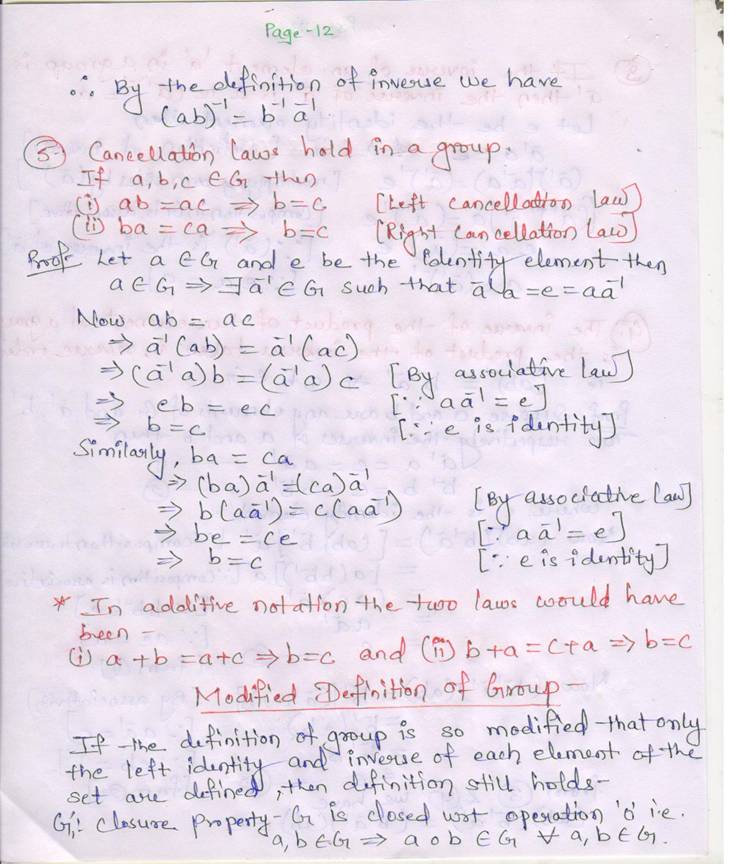 Page-12
∴ By the definition of inverse we have
(ab)⁻¹ = b⁻¹ a⁻¹
(5) Cancellation laws hold in a group.
If a, b, c ∈ G then
(i) ab = ac ⇒ b = c [Left cancellation law]
(ii) ba = ca ⇒ b = c [Right Cancellation law]
Proof: Let a ∈ G and e be the Identity element then
a ∈ G ⇒ ∃ a⁻¹ ∈ G such that a⁻¹a = e = aa⁻¹
Now ab = ac
⇒ a⁻¹(ab) = a⁻¹(ac)
⇒ (a⁻¹a)b = (a⁻¹a)c [By associative law]
⇒ eb = ec [∵ aa⁻¹ = e]
⇒ b = c [∵ e is identity]
Similarly, ba = ca
⇒ (ba)a⁻¹ = (ca)a⁻¹
⇒ b(aa⁻¹) = c(aa⁻¹) [By associative law]
⇒ be = ce [∵ aa⁻¹ = e]
⇒ b = c [∵ e is identity]
* In additive notation the two laws would have
been —
(i) a + b = a + c ⇒ b = c and (ii) b + a = c + a ⇒ b = c
Modified Definition of Group —
If the definition of group is so modified that only
the left identity and inverse of each element of the
set are defined, then definition still holds—
G₁: Closure Property - G is closed wrt operation 'o' i.e.
a, b ∈ G ⇒ a o b ∈ G ∀ a, b ∈ G.